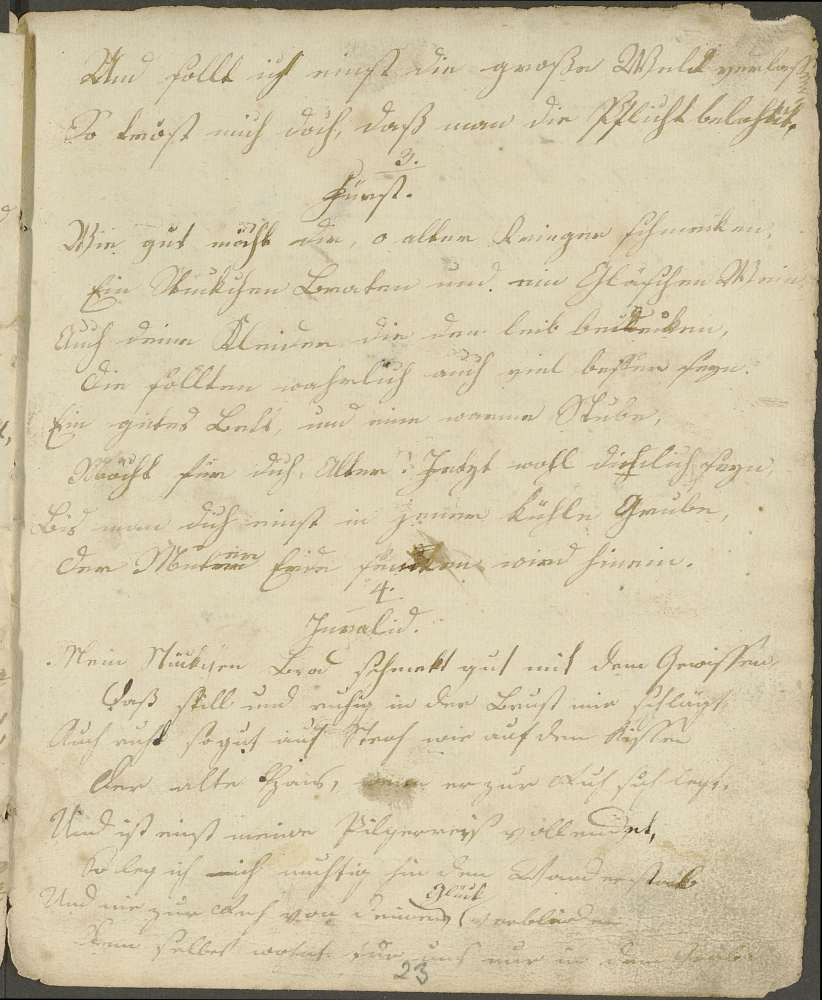 Und sollt ich einst die große Welt verlassen
So tröst mich doch, daß man die Pflicht belohnt.
3.
Fürst.
Wie gut möcht dir, o alter Krieger schmecken,
Ein Stückchen Braten und ein Gläschen Wein
Auch deine Kleider die den leib bedecken,
die sollten wahrlich auch viel besser seyn.
Ein gutes Bett, und eine warme Stube,
Möcht für dich, Alter! Jetzt wohl dienlich seyn,
Bis man dich einst in jener kühle Grube,
der Mutter Erde senken wird hinein.
4.
Invalid.
Mein Stückchen Brod schmekt gut mit dem Gewissen,
daß still und ruhig in der Brust mir schlägt,
Auch ruht sogut auf Stroh wie auf dem Kissen
der alte Greis, wenn er zur Ruh sich legt.
Und ist einst meine Pilgerreiß vollendet,
So leg ich mich muthig hin den Wanderstab
Und nie zur Ruh von deinem Glück verblendet
selbst wohnt für uns nur in dem Grabe
23